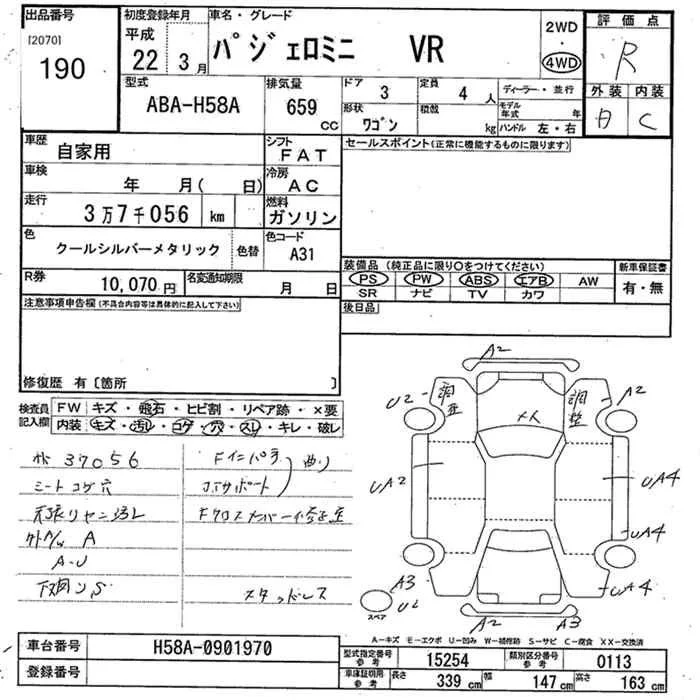 出品番号
[2070]
190
初度登録年月
平成
22年 3月
車名・グレード
パジェロミニ VR
2WD
・
4WD
評価点
R
外装 内装
C
型式
ABA-H58A
排気量
659 cc
ドア 3
形状 ワゴン
定員 4 人
積載 kg
ディーラー・並行
モデル年式 年
ハンドル 左・右
車歴
自家用
シフト
FAT
セールスポイント(正常に機能するものに限ります)
車検
年 月( 日)
冷房
AC
走行
3万7千056 km
燃料
ガソリン
色
クールシルバーメタリック
色替
色コード
A31
R券
10,070円
名変通知期限
月 日
装備品(純正品に限り○をつけてください)
PS PW ABS エアB AW
SR ナビ TV カワ
新車保証書
有・無
注意事項申告欄(不具合内容等は具体的に記入して下さい)
後日品
修復歴 有〔箇所 〕
検査員記入欄
FW キズ・飛石・ヒビ割・リペア跡・×要
内装 キズ・汚れ・コゲ・穴・スレ・キレ・破レ
37056
シートコゲ穴
天張リヤニ汚レ
外A/W A
A-U
下廻りS
Fインパネ
曲り
コアサポート
Fクロスメンバー修正歪
スタッドレス
A2
調整
調整
U2
A2
メ人
UA2
UA4
UA4
UA4
A3
U2
スペア
A2
A3
A-キズ M-エクボ U-凹み W-補修跡 S-サビ C-腐食 XX-交換済
車台番号
H58A-0901970
登録番号
型式指定番号 参考
15254
類別区分番号 参考
0113
車庫証明用 参考
長さ 339 cm
幅 147 cm
高さ 163 cm